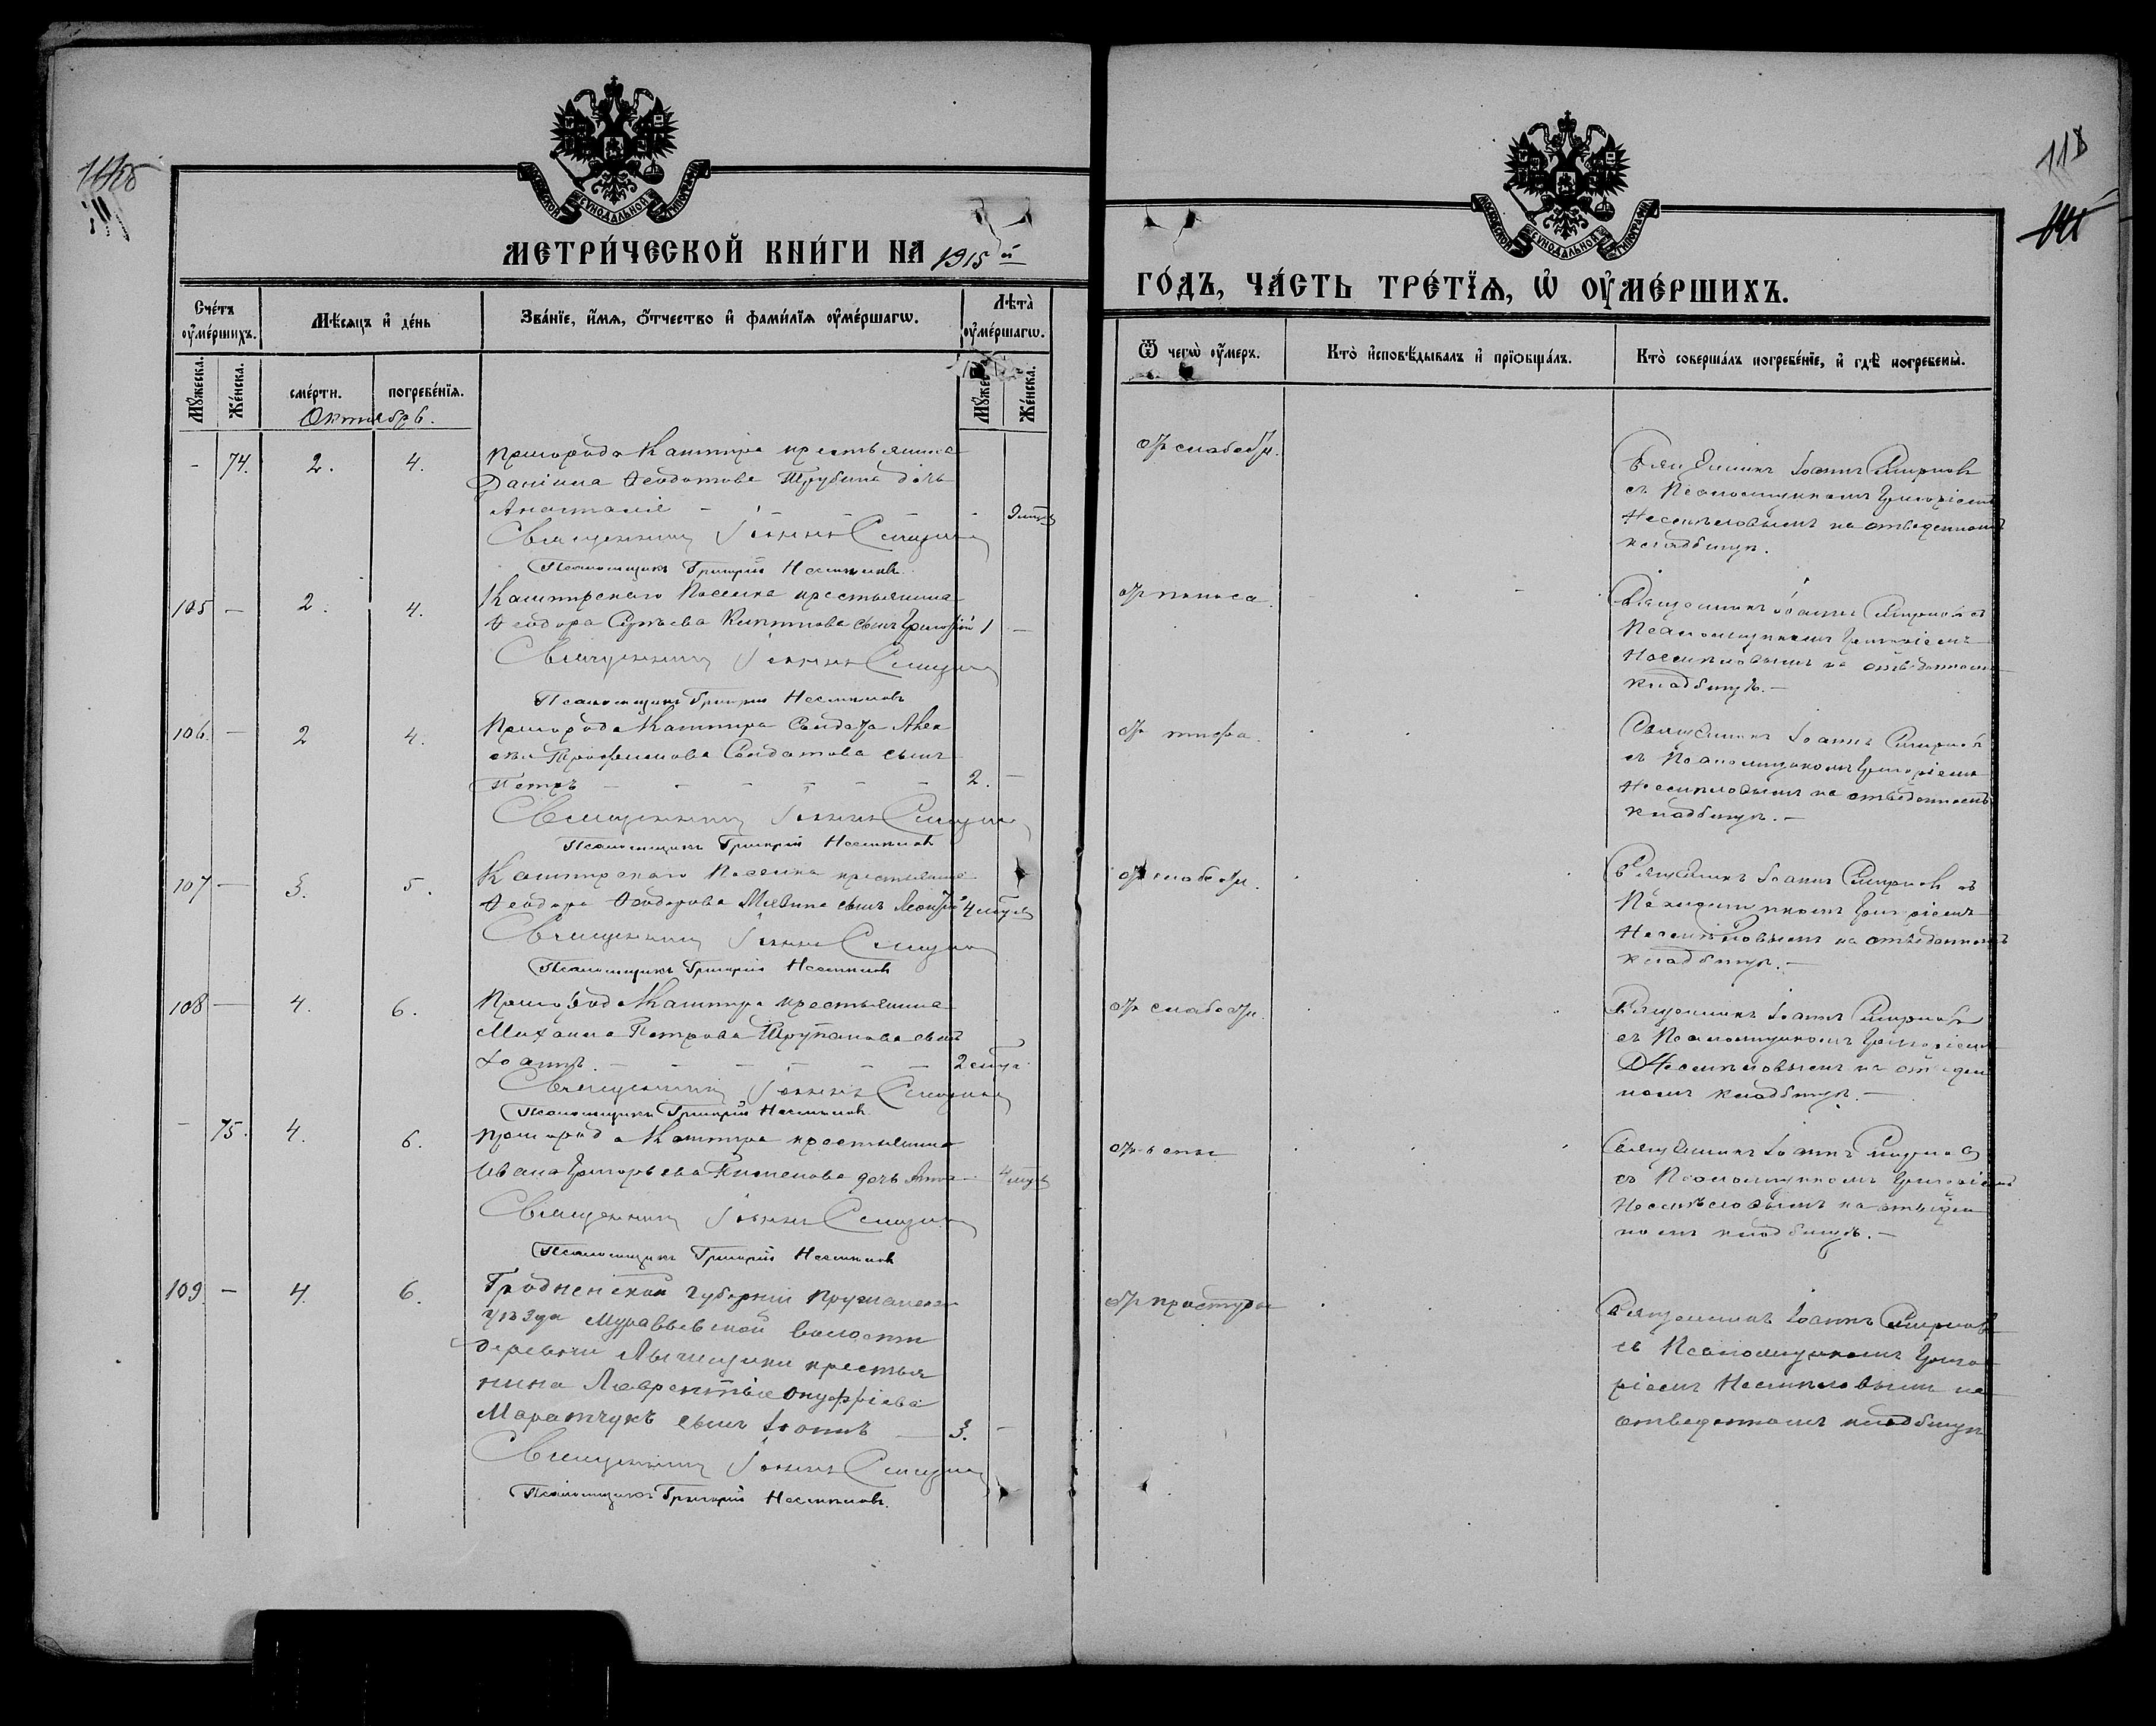 118
МЕТРИ́ЧЕСКОЙ КНИ́ГИ НА 1915 й
ГО́ДЪ, ЧА́СТЬ ТРЕ́ТЇѦ, Ѡ҆ ОУ҆МЕ́РШИХЪ.
Сче́тъ оу҆ме́ршихъ.
Мѣ́сяцъ и҆ де́нь
Зва́нїе, и҆́мѧ, ѻ҆́тчество и҆ фами́лїѧ оу҆ме́ршагѡ.
Лѣ́та оу҆ме́ршагѡ.
Ѿ чегѡ̀ оу҆́меръ.
Кто̀ и҆сповѣ́дывалъ и҆ прїѡбща́лъ.
Кто̀ соверша́лъ погребе́нїе, и҆ гдѣ̀ погребены̀.
Му́жеска.
Же́нска.
сме́рти.
погребе́нїѧ.
Же́нска.
Октябрь.
- 74. 2. 4.
Пригорода Каштира крестьянина
Даніила Ѳеодотова дочь
Анастасія
Священникъ Іоаннъ Смирнов
Псаломщикъ Григорій Несмѣловъ
от слабости.
Священникъ Іоаннъ Смирновъ
съ Псаломщикомъ Григоріемъ
Несмѣловымъ на отведенномъ
кладбищѣ.
105 — 2. 4.
Каштирского Поселка крестьянина
Ѳеодора сынъ Григорій 1 —
Священникъ Іоаннъ Смирнов
Псаломщикъ Григорій Несмѣловъ
от поноса.
Священникъ Іоаннъ Смирновъ съ
Псаломщикомъ Григоріемъ
Несмѣловымъ на отведенномъ
кладбищѣ. —
106. — 2 4.
Пригорода Каштира Солдата Алек
сѣя Трофимова Солдатова сынъ
Петръ 2. —
Священникъ Іоаннъ Смирнов
Псаломщикъ Григорій Несмѣловъ
от тифа.
Священникъ Іоаннъ Смирновъ
съ Псаломщикомъ Григоріемъ
Несмѣловымъ на отведенномъ
кладбищѣ. —
107 — 3. 5.
Каштирского Поселка крестьянина
Ѳеодора Ѳеодорова сынъ
Священникъ Іоаннъ Смирнов
Псаломщикъ Григорій Несмѣловъ
от слабости.
Священникъ Іоаннъ Смирновъ съ
Псаломщикомъ Григоріемъ
Несмѣловымъ на отведенномъ
кладбищѣ. —
108 — 4. 6.
Пригорода Каштира крестьянина
Михаила Петрова сынъ
Іоаннъ.
Священникъ Іоаннъ Смирнов
Псаломщикъ Григорій Несмѣловъ
от слабости.
Священникъ Іоаннъ Смирновъ
съ Псаломщикомъ Григоріемъ
Несмѣловымъ на отведен
номъ кладбищѣ. —
— 75. 4. 6.
Пригорода Каштира крестьянина
Ивана Григорьева Пименова дочь Анна
Священникъ Іоаннъ Смирнов
Псаломщикъ Григорій Несмѣловъ
от оспы
Священникъ Іоаннъ Смирновъ
съ Псаломщикомъ Григоріемъ
Несмѣловымъ на отведен
номъ кладбищѣ. —
109. — 4. 6.
Гродненской губерніи Пружанскаго
уѣзда Муравьевской волости
деревни крестья
нина Лаврентія Онуфріева
Маратчукъ сынъ Іоаннъ — 3. —
Священникъ Іоаннъ Смирнов
Псаломщикъ Григорій Несмѣловъ.
от простуды
Священникъ Іоаннъ Смирновъ
съ Псаломщикомъ Григо
ріемъ Несмѣловымъ на
отведенномъ кладбищѣ